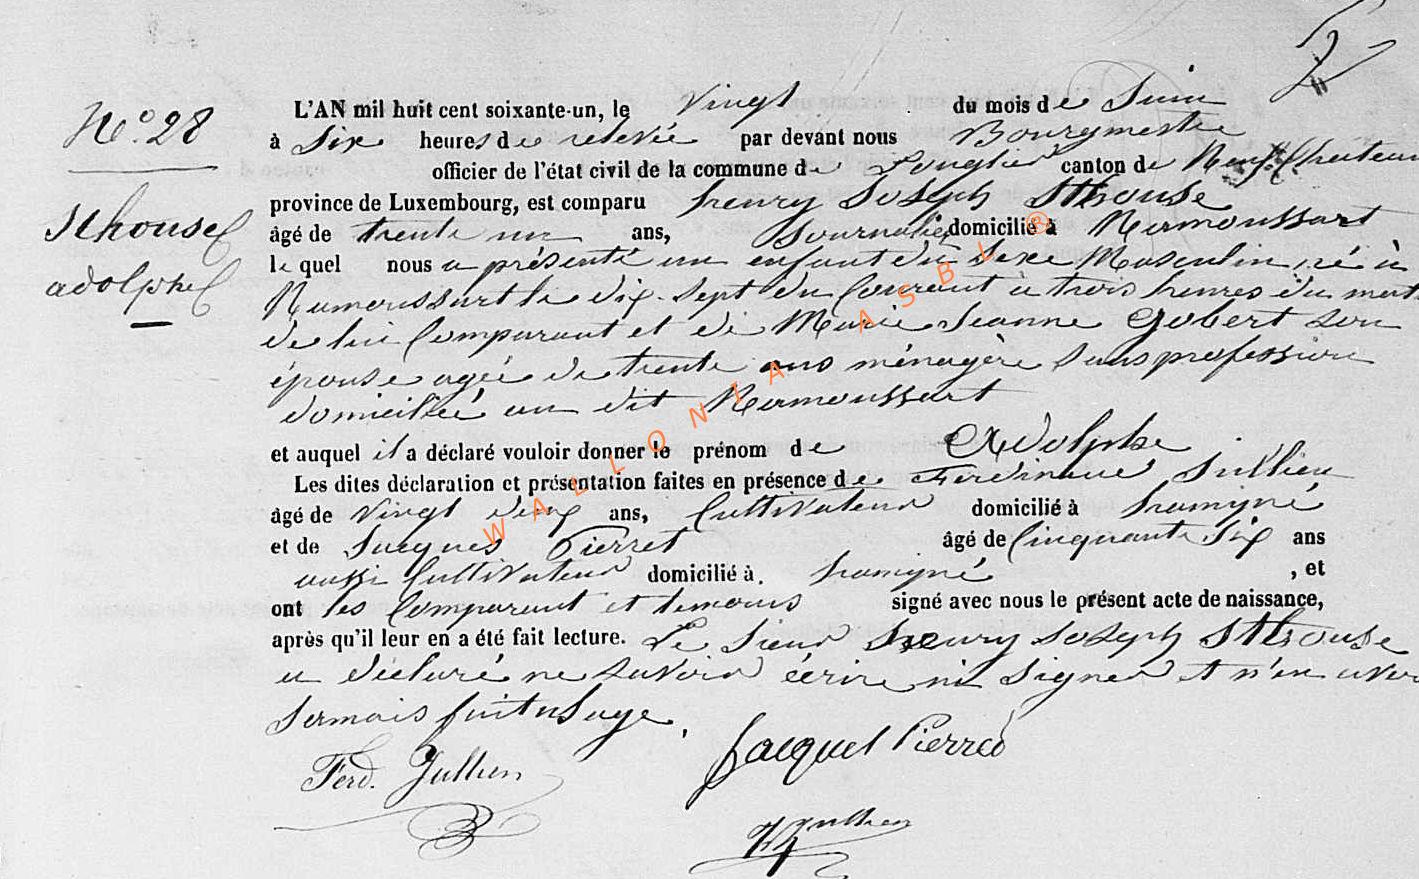 N° 28
Sthouse
adolphe
L'AN mil huit cent soixante-un, le vingt du mois de Juin
à Six heures de relevée par devant nous Bourgmestre
officier de l'état civil de la commune de Longlier canton de Neufchateau
province de Luxembourg, est comparu henry Joseph Sthouse
âgé de trente un ans, Journalier domicilié à Namoussart
le quel nous a présenté un enfant du Sexe Masculin, né à
Namoussart le dix-Sept du Courant à trois heures du mat
de lui Comparant et de Marie Jeanne Gobert son
épouse agée de trente ans ménagère Sans profession
domiciliée au dit Namoussart
et auquel il a déclaré vouloir donner le prénom de Adolphe
Les dites déclaration et présentation faites en présence de Ferdinand Jullien
âgé de vingt deux ans, Cultivateur domicilié à hamipré
et de Jacques Pierret âgé de Cinquante Six ans
aussi Cultivateur domicilié à hamipré, et
ont les Comparant et temoins signé avec nous le présent acte de naissance,
après qu'il leur en a été fait lecture. Le Sieur henry Joseph Sthouse
a déclaré ne Savoir écrire ni Signer et n'en avoir
Jamais fait usage.
Ferd. Jullien
Jacques Pierret
Jullien
WALLONIA ASBL ®